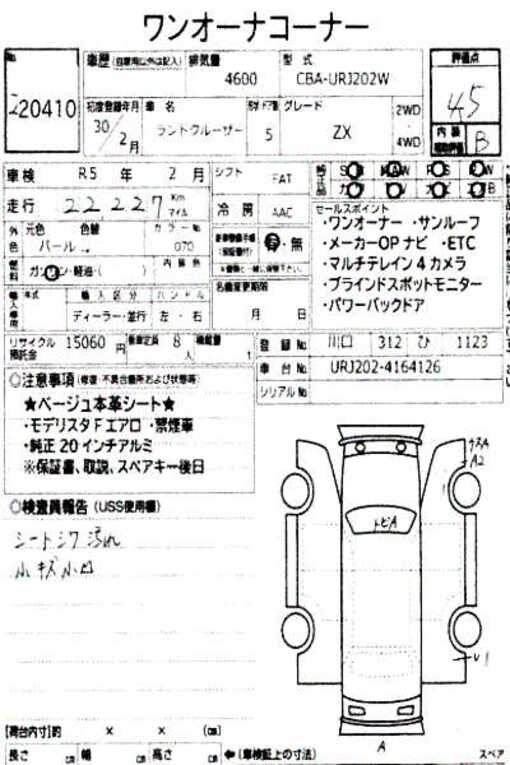 ワンオーナコーナー
No 車歴 (自家用以外は記入) 排気量 型式 評価点
220410 4600 CBA-URJ202W 4.5
初度登録年月 車名 ドア数 グレード 2WD 内装 B
30年 2月 ランドクルーザー 5 ZX 4WD
車検 R5年 2月 シフト FAT
走行 22,227 Km マイル 冷房 AAC
セールスポイント
・ワンオーナー ・サンルーフ
・メーカーOPナビ ・ETC
・マルチテレイン4カメラ
・ブラインドスポットモニター
・パワーバックドア
外色 元色 色替 カラーNo
パール 070 有・無
燃料 ガソリン・軽油・( ) 内装色
名義変更期限
月 日
輸入車用 年式 輸入区分 ハンドル
ディーラー・並行 左・右
リサイクル預託金 15060円 乗車定員 8人 積載量 t
登録No 川口 312 ひ 1123
車台No URJ202-4164126
シリアルNo
○注意事項 (修復・不具合箇所および状態等)
★ベージュ本革シート★
・モデリスタFエアロ ・禁煙車
・純正20インチアルミ
※保証書、取説、スペアキー後日
○検査員報告 (USS使用欄)
シートシワ 汚れ
小キズ小凹
トビA
A2
U1
A
[荷台内寸]約 × × (cm)
長さ cm 幅 cm 高さ cm ←(車検証上の寸法) スペア